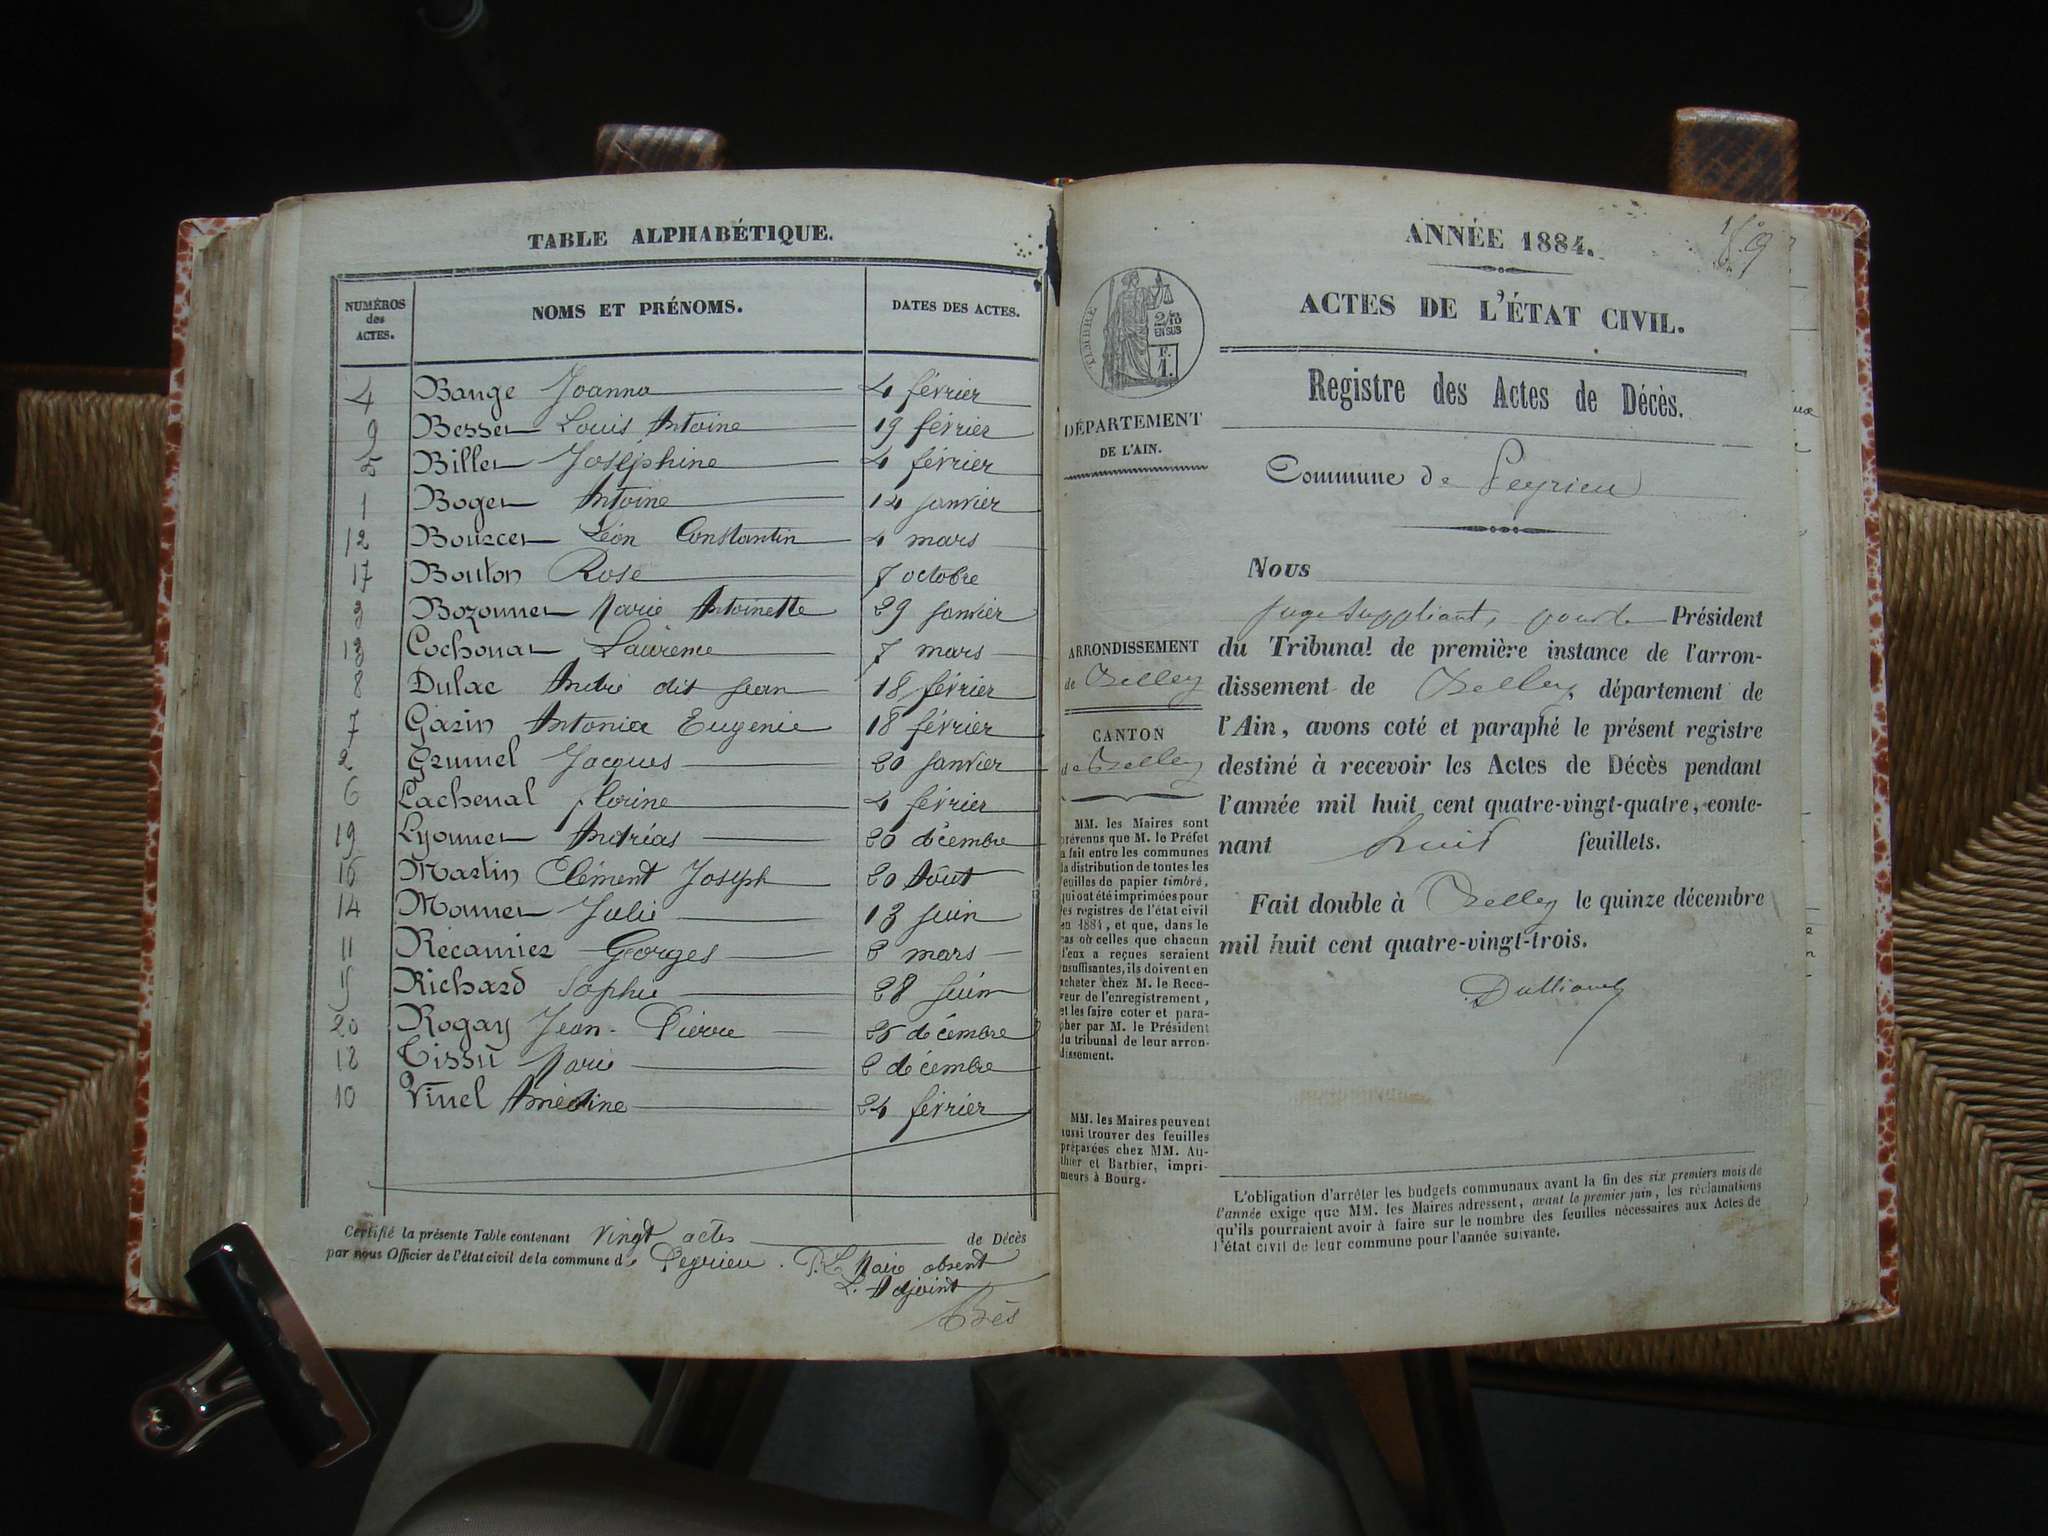 TABLE ALPHABÉTIQUE.
NUMÉROS des ACTES. NOMS ET PRÉNOMS. DATES DES ACTES.
4 Bange Joanna 4 février
9 Besser Louis Antoine 19 février
5 Biller Joséphine 4 février
1 Roger Antoine 14 janvier
12 Bourcer Léon Constantin 4 mars
17 Bouton Rose 7 octobre
3 Bozonner Marie Antoinette 29 janvier
13 Cochonar Laurence 7 mars
8 Dulac André dit Jean 18 février
7 Garin Antonia Eugenie 18 février
2 Grumel Jacques 20 janvier
6 Lachenal florine 4 février
19 Lyonner Andréas 20 décembre
16 Martin Clément Joseph 20 Août
14 Monner Julie 13 juin
11 Récamier Georges 2 mars
15 Richard Sophie 28 juin
20 Rogay Jean-Pierre 25 décembre
18 Tissu Marie 2 décembre
10 Vinel 24 février
Certifié la présente Table contenant vingt actes de Décès
par nous Officier de l'état civil de la commune de Peyrieu. P. Le Maire absent
L. Adjoint
ANNÉE 1884.
ACTES DE L'ÉTAT CIVIL.
TIMBRE
2/10
EN SUS
F.
1.
Registre des Actes de Décès.
DÉPARTEMENT
DE L'AIN.
Commune de Peyrieu
Nous
juge suppléant, pour le Président
du Tribunal de première instance de l'arron-
dissement de Belley, département de
l'Ain, avons coté et paraphé le présent registre
destiné à recevoir les Actes de Décès pendant
l'année mil huit cent quatre-vingt-quatre, conte-
nant huit feuillets.
Fait double à Belley le quinze décembre
mil huit cent quatre-vingt-trois.
ARRONDISSEMENT
de Belley
CANTON
de Belley
MM. les Maires sont
prévenus que M. le Préfet
a fait entre les communes
la distribution de toutes les
feuilles de papier timbré,
qui ont été imprimées pour
les registres de l'état civil
en 1884, et que, dans le
cas où celles que chacun
d'eux a reçues seraient
insuffisantes, ils doivent en
acheter chez M. le Rece-
veur de l'enregistrement,
et les faire coter et para-
pher par M. le Président
du tribunal de leur arron-
dissement.
MM. les Maires peuvent
aussi trouver des feuilles
préparées chez MM. Au-
thier et Barbier, impri-
meurs à Bourg.
L'obligation d'arrêter les budgets communaux avant la fin des six premiers mois de
l'année exige que MM. les Maires adressent, avant le premier juin, les réclamations
qu'ils pourraient avoir à faire sur le nombre des feuilles nécessaires aux Actes de
l'état civil de leur commune pour l'année suivante.